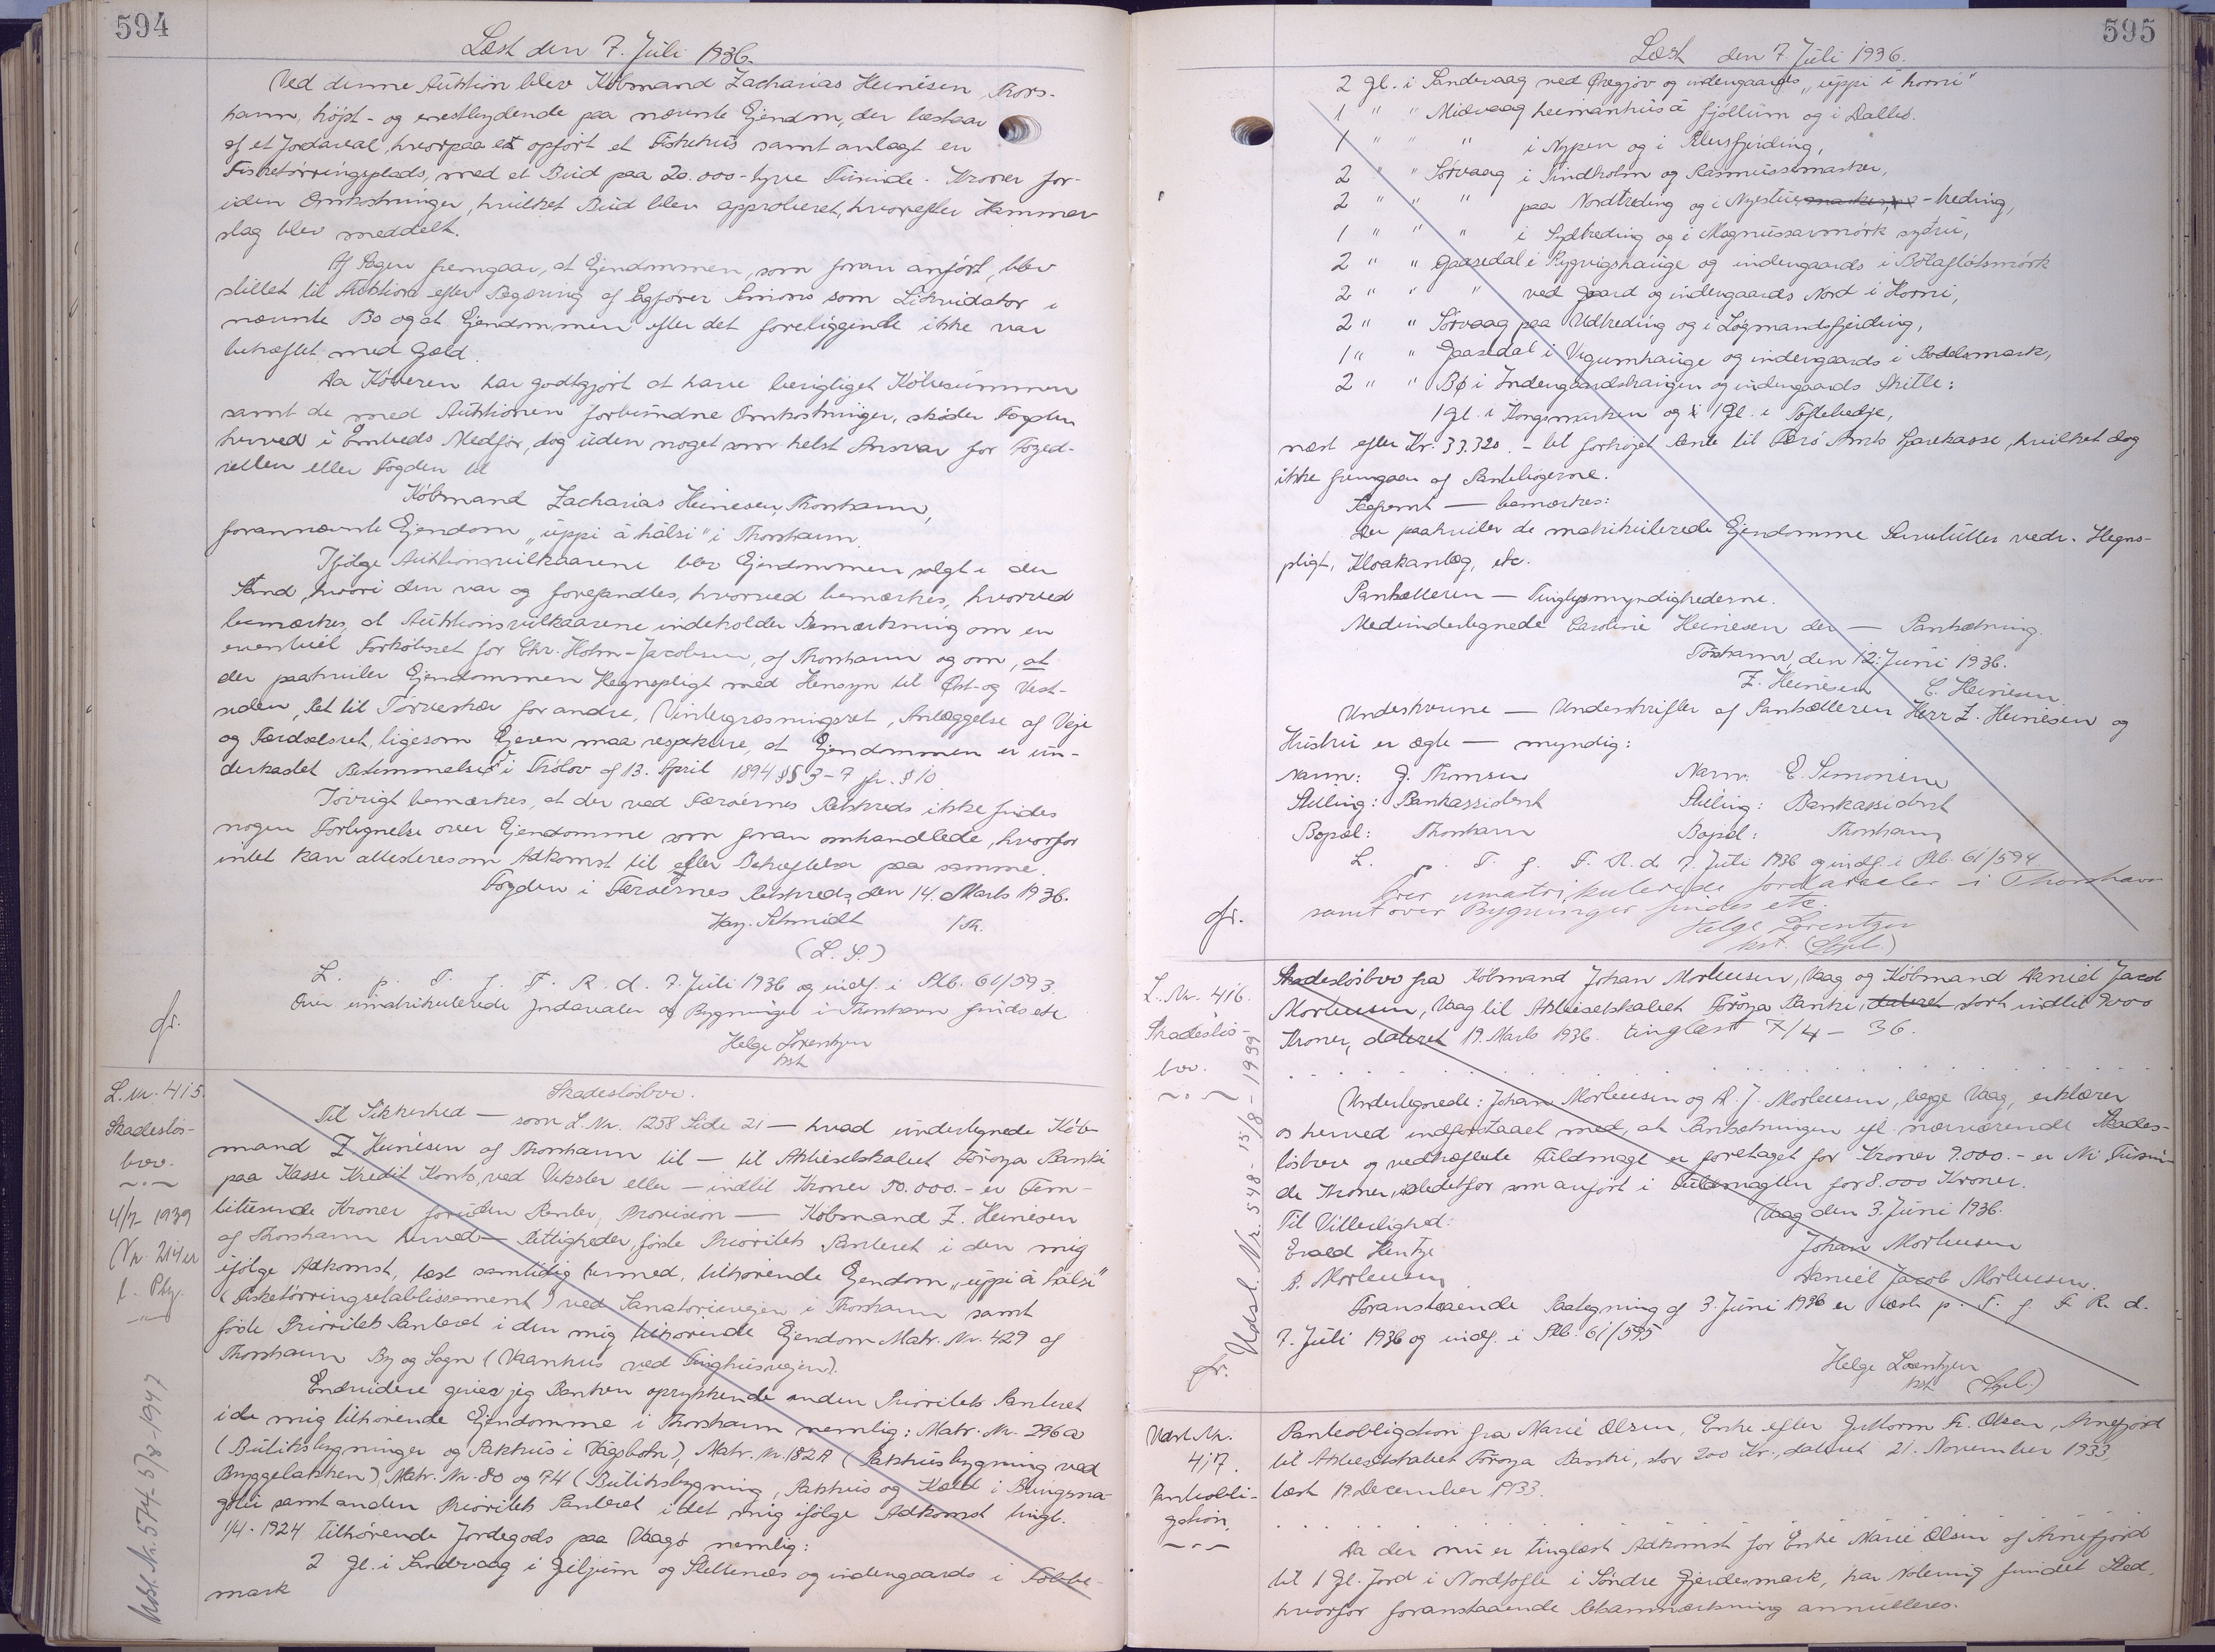 594
Læst den 7. Juli 1936.
Ved denne Auktion blev Købmand Zacharias Heinesen Thors-
havn, højst- og enestbydende paa nævnte Ejendom, der bestaar
af et Jordareal, hvorpaa er opført et Fiskehus samt anlagt en
Fisketørringsplads, med et Bud paa 20.000 - tyve Tusinde - Kroner for-
uden Omkostninger, hvilket Bud blev approberet, hvorefter Hammer-
slag blev meddelt.
Af Sagen fremgaar, at Ejendommen, som foran anført, blev
stillet til Auktion efter Begæring af Sagfører Simons som Likvidator i
nævnte Bo og at Ejendommen efter det foreliggende ikke var
behæftet med Gæld.
Da Køberen har godtgjort at have berigtiget Købesummen
samt de med Auktionen forbundne Omkostninger, skøder Fogden
herved i Embeds Medfør, dog uden noget som helst Ansvar for Foged-
retten eller Fogden til
Købmand Zacharias Heinesen, Thorshavn,
forannævnte Ejendom "uppi á hálsi" i Thorshavn.
Ifølge Auktionsvilkaarene blev Ejendommen solgt i den
Stand, hvori den var og forefandtes, hvorved bemærkes, hvorved
bemærkes, at Auktionsvilkaarene indeholder Bemærkning om en
eventuel Forkøbsret for Chr. Holm-Jacobsen, af Thorshavn og om, at
der paahviler Ejendommen Hegnspligt med Hensyn til Øst- og Vest-
siden, Ret til Tørveskær for andre, Vintergræsningsret, Anlæggelse af Veje
og Færdselsret, ligesom Ejeren maa respektere, at Ejendommen er un-
derkastet Bestemmelser i Thólov af 13. April 1894 §§ 3-7 jfr. § 10.
Iøvrigt bemærkes, at der ved Færøernes Retskreds ikke findes
nogen Fortegnelse over Ejendomme som foran omhandlede, hvorfor
intet kan attesteres om Adkomst til eller Behæftelse paa samme.
Fogden i Færøernes Retskreds, den 14. Marts 1936.
Hay. Schmidt /Th.
(L. S.)
L. p. T. f. F. R. d. 7. Juli 1936 og indf. i Skb. 61/593.
Over umatrikulerede Jordarealer og Bygninger i Thorshavn findes etc
Helge Lorentzen
kst.
fr.
L. Nr. 415.
Skadesløs-
brev.
4/7- 1939
(Nr. 214
Skadesløsbrev.
Til Sikkerhed — som L. Nr. 1258 Side 21 — hvad undertegnede Køb-
mand Z. Heinesen af Thorshavn til — til Aktieselskabet Føroya Banki
paa Kasse Kredit Konto, ved Veksler eller — indtil Kroner 50.000.- er Fem-
titusende Kroner foruden Renter, Provision — Købmand Z. Heinesen
af Thorshavn herved — Rettigheder, første Prioritets Panteret i den mig
ifølge Adkomst, læst samtidig hermed, tilhørende Ejendom "uppi á hálsi"
(Fisketørringsetablissement) ved Sanatorievejen i Thorshavn samt
første Prioritets Panteret i den mig tilhørende Ejendom Matr. Nr. 429 af
Thorshavn By og Sogn (Vaanhus ved Tinghusvejen).
Endvidere giver jeg Banken oprykkende anden Prioritets Panteret
i de mig tilhørende Ejendomme i Thorshavn nemlig: Matr. Nr. 296a
(Butiksbygninger og Pakhus i Vágsbotn), Matr. Nr. 182A (Pakhusbygning ved
Byggebakken), Matr. Nr. 80 og 74 (Butiksbygning, Pakhus og Kæld i Bringsna-
gøtu samt anden Prioritets Panteret i det mig ifølge Adkomst tingl.
1/4 - 1924 tilhørende Jordegods paa Vaagø nemlig:
2 Gl. i Sandevaag i Giljum og Slettenæs og indengaards i Tobbe-
mark
Udsl. Nr. 574 - 5/8-1947
595
Læst den 7. Juli 1936.
2 Gl. i Sandevaag ved Øregjov og indengaards "uppi í horni"
1 " " Midvaag heimanhus á fjøllum og i Dalles.
1 " " " i Nypen og i Reusfjerding,
2 " " Sørvaag i Tindholm og Rasmussemarken,
2 " " " paa Nordtreding og i Nyestue -treding,
1 " " " i Sydtreding og i Magnussarmørk syðru,
2 " " Gaasedal i Rygvigshauge og indengaards i Bólaflotsmørk
2 " " " ved Gaard og indengaards Nord i Horni,
2 " " Sørvaag paa Udtreding og i Løgmandsfjerding,
1 " " Gaasedal i Vegumhauge og indengaards i Bodelsmark,
2 " " Bø i Indengaardshaugen og indengaards Skitle:
1 Gl. i Kongsmarken og 1 Gl. i Tofteledje,
næst efter Kr. 33.320.- til forhøjet Rente til Færø Amts Sparekasse, hvilket dog
ikke fremgaar af Pantebøgerne.
Saafremt — bemærkes:
Der paahviler de matrikulerede Ejendomme Servitutter vedr. Hegns-
pligt, Kloakanlæg, etc.
Panhaveren — Tinglysmyndighederne.
Medundertegnede Caroline Heinesen der — Pantsætning.
Tórshavn, den 12. Juni 1936.
Z. Heinesen C. Heinesen
Underskrevne — Underskrifter af Pantsætteren Herr Z. Heinesen og
Hustru er ægte — myndig:
Navn: J. Thomsen Navn: E. Simonsen
Stilling: Bankassistent Stilling: Bankassistent
Bopæl: Thorshavn Bopæl: Thorshavn
L. p. T. f. F. R. d. 7. Juli 1936 og indf. i Skb. 61/594
Over umatrikulerede Jordarealer i Thorshavn
samt over Bygninger findes etc.
Helge Lorentzen
kst. (Stpl.)
fr.
L. Nr. 416.
Skadesløs-
brev.
Udsl. Nr. 548 - 15/8 - 1939
Skadesløsbrev fra Købmand Johan Mortensen, Vaag og Købmand Daniel Jacob
Mortensen, Vaag til Aktieselskabet Føroya Banki, dateret stort indtil 9000
Kroner, dateret 19. Marts 1936. tinglæst 7/4 - 36.
Undertegnede: Johan Mortensen og D. J. Mortensen, begge Vaag, erklærer
os herved indforstaaet med, at Pantsætningen ifl. nærværende Skades-
løsbrev og vedhæftede Fuldmagt er foretaget for Kroner 9.000.- er Ni Tusin-
de Kroner, istedetfor som anført i Fuldmagten for 8.000 Kroner.
Vaag den 3. Juni 1936.
Til Vitterlighed:
Evald Hentze Johan Mortensen
P. Mortensen Daniel Jacob Mortensen.
Foranstaaende Paategning af 3. Juni 1936 er læst p. T. f. F. R. d.
7. Juli 1936 og indf. i Skb. 61/595
Helge Lorentzen
kst. (Stpl.)
fr.
Læst Nr.
417.
Panteobli-
gation.
Panteobligation fra Marie Olsen, Enke efter Guttorm Fr. Olsen, Arnefjord
til Aktieselskabet Føroya Banki, stor 200 Kr., dateret 21. November 1933,
læst 19. December 1933.
Da der nu er tinglæst Adkomst for Enke Marie Olsen af Arnefjord
til 1 Gl. Jord i Nordtofte i Søndre Gjerdesmark, har Notering fundet Sted,
hvorfor foranstaaende Retsanmærkning annulleres.